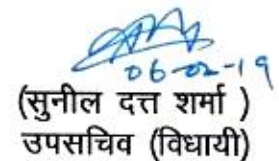 06-02-19
(सुनील दत्त शर्मा )
उपसचिव (विधायी)